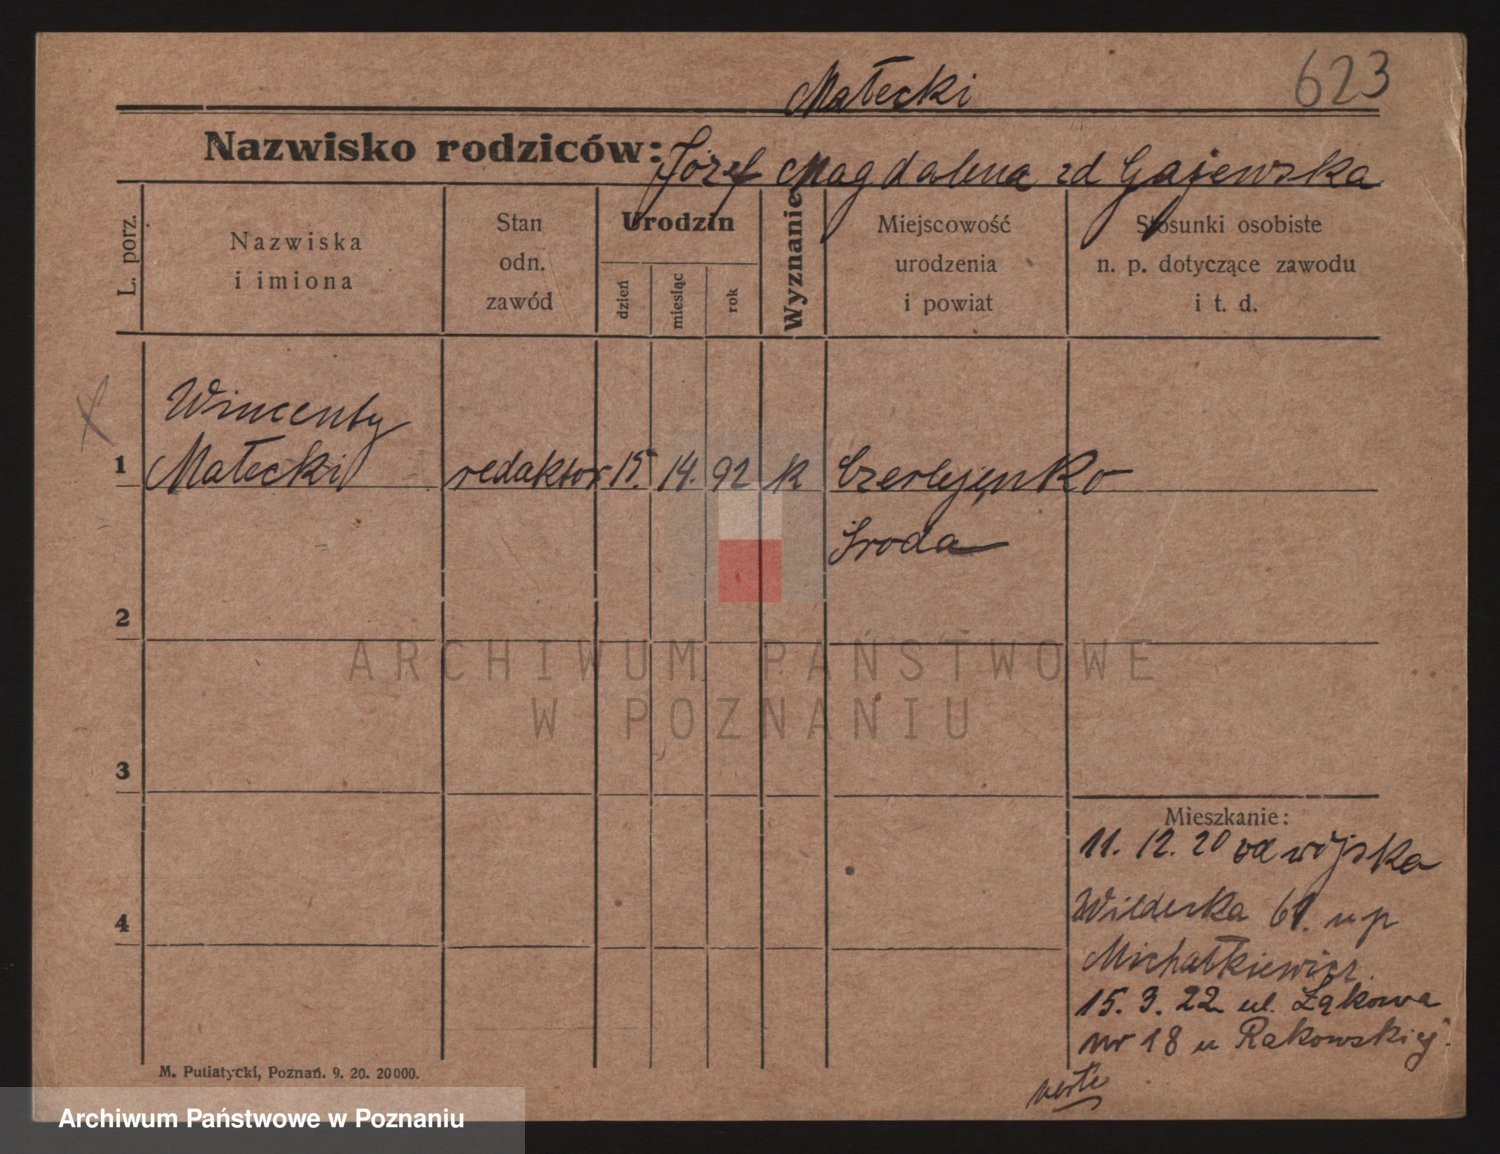 623
Małecki
Nazwisko rodziców: Józef Magdalena zd Gajewska
L. porz.
Nazwiska
i imiona
Stan
odn.
zawód
Urodzin
dzień
miesiąc
rok
Wyznanie
Miejscowość
urodzenia
i powiat
Stosunki osobiste
n. p. dotyczące zawodu
i t. d.
Wincenty
1 Małecki redaktor 15. 14. 92 k Czerlejenko
Środa
2
ARCHIWUM PAŃSTWOWE
W POZNANIU
3
Mieszkanie:
11. 12. 20 od wojska
4
Wilderka 61. u p
Michałkiewicz.
15. 3. 22 ul. Łąkowa
nr 18 u Rakowskiej.
verte
M. Putiatycki, Poznań. 9. 20. 20000.
Archiwum Państwowe w Poznaniu